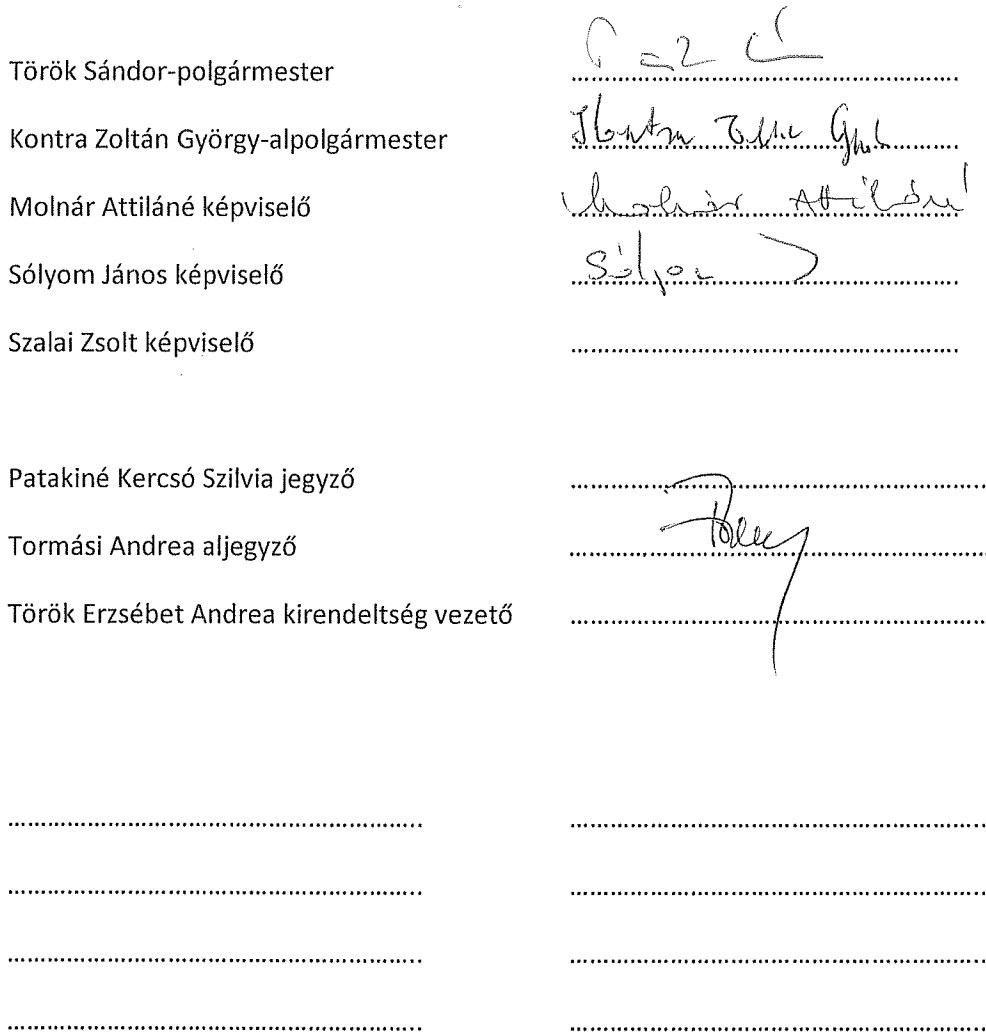 Török Sándor-polgármester
Kontra Zoltán György-alpolgármester Kontra
Molnár Attiláné képviselő Molnár Attiláné
Sólyom János képviselő Sólyom J
Szalai Zsolt képviselő
Patakiné Kercsó Szilvia jegyző
Tormási Andrea aljegyző
Török Erzsébet Andrea kirendeltség vezető